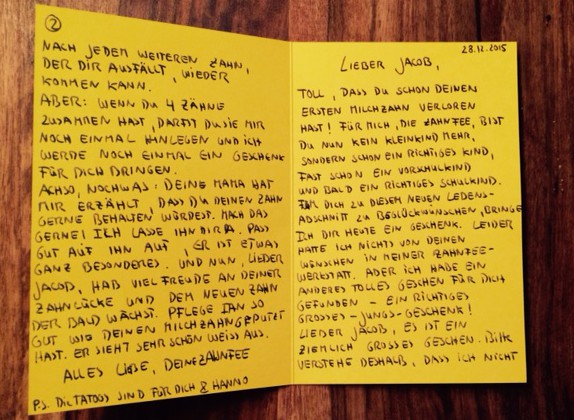 28.12.2015
LIEBER JACOB,
TOLL, DASS DU SCHON DEINEN
ERSTEN MILCHZAHN VERLOREN
HAST! FÜR MICH, DIE ZAHNFEE, BIST
DU NUN KEIN KLEINKIND MEHR,
SONDERN SCHON EIN RICHTIGES KIND,
FAST SCHON EIN VORSCHULKIND
UND BALD EIN RICHTIGES SCHULKIND.
UM DICH ZU DIESEM NEUEN LEBENS-
ABSCHNITT ZU BEGLÜCKWÜNSCHEN, BRINGE
ICH DIR HEUTE EIN GESCHENK. LEIDER
HATTE ICH NICHTS VON DEINEN
WÜNSCHEN IN MEINER ZAHNFEE-
WERKSTATT. ABER ICH HABE EIN
ANDERES TOLLES GESCHEN FÜR DICH
GEFUNDEN – EIN RICHTIGES
GROSSES-JUNGS-GESCHENK!
LIEBER JACOB, ES IST EIN
ZIEMLICH GROSSES GESCHEN. BITTE
VERSTEHE DESHALB, DASS ICH NICHT
2
NACH JEDEM WEITEREN ZAHN,
DER DIR AUSFÄLLT, WIEDER
KOMMEN KANN.
ABER: WENN DU 4 ZÄHNE
ZUSAMMEN HAST, DARFST DU SIE MIR
NOCH EINMAL HINLEGEN UND ICH
WERDE NOCH EINMAL EIN GESCHENK
FÜR DICH BRINGEN.
ACHSO, NOCHWAS: DEINE MAMA HAT
MIR ERZÄHLT, DASS DU DEINEN ZAHN
GERNE BEHALTEN WÜRDEST. MACH DAS
GERNE! ICH LASSE IHN DIR DA. PASS
GUT AUF IHN AUF, ER IST ETWAS
GANZ BESONDERES. UND NUN, LIEBER
JACOB, HAB VIEL FREUDE AN DEINER
ZAHNLÜCKE UND DEM NEUEN ZAHN
DER BALD WÄCHST. PFLEGE IHN SO
GUT WIE DEINEN MILCHZAHN GEPUTZT
HAST. ER SIEHT SEHR SCHÖN WEISS AUS.
ALLES LIEBE, DEINE ZAHNFEE
P.S. DIE TATOOS SIND FÜR DICH & HANNO